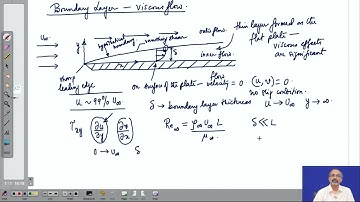 Boundary Layer – Viscous flow.
U∞
y
hypothetical boundary
outer flow
shearing stress
δ
inner flow
x
thin layer formed on the
flat plate –
viscous effects
are significant
sharp
leading edge
on surface of the plate – velocity = 0 (u, v) = 0
no slip condition.
u ~ 99% U∞
δ → boundary layer thickness u → U∞ y → ∞
τxy ∂u/∂y ∂v/∂x
Re∞ = ρ∞ U∞ L / μ∞
δ << L
0 → U∞ δ